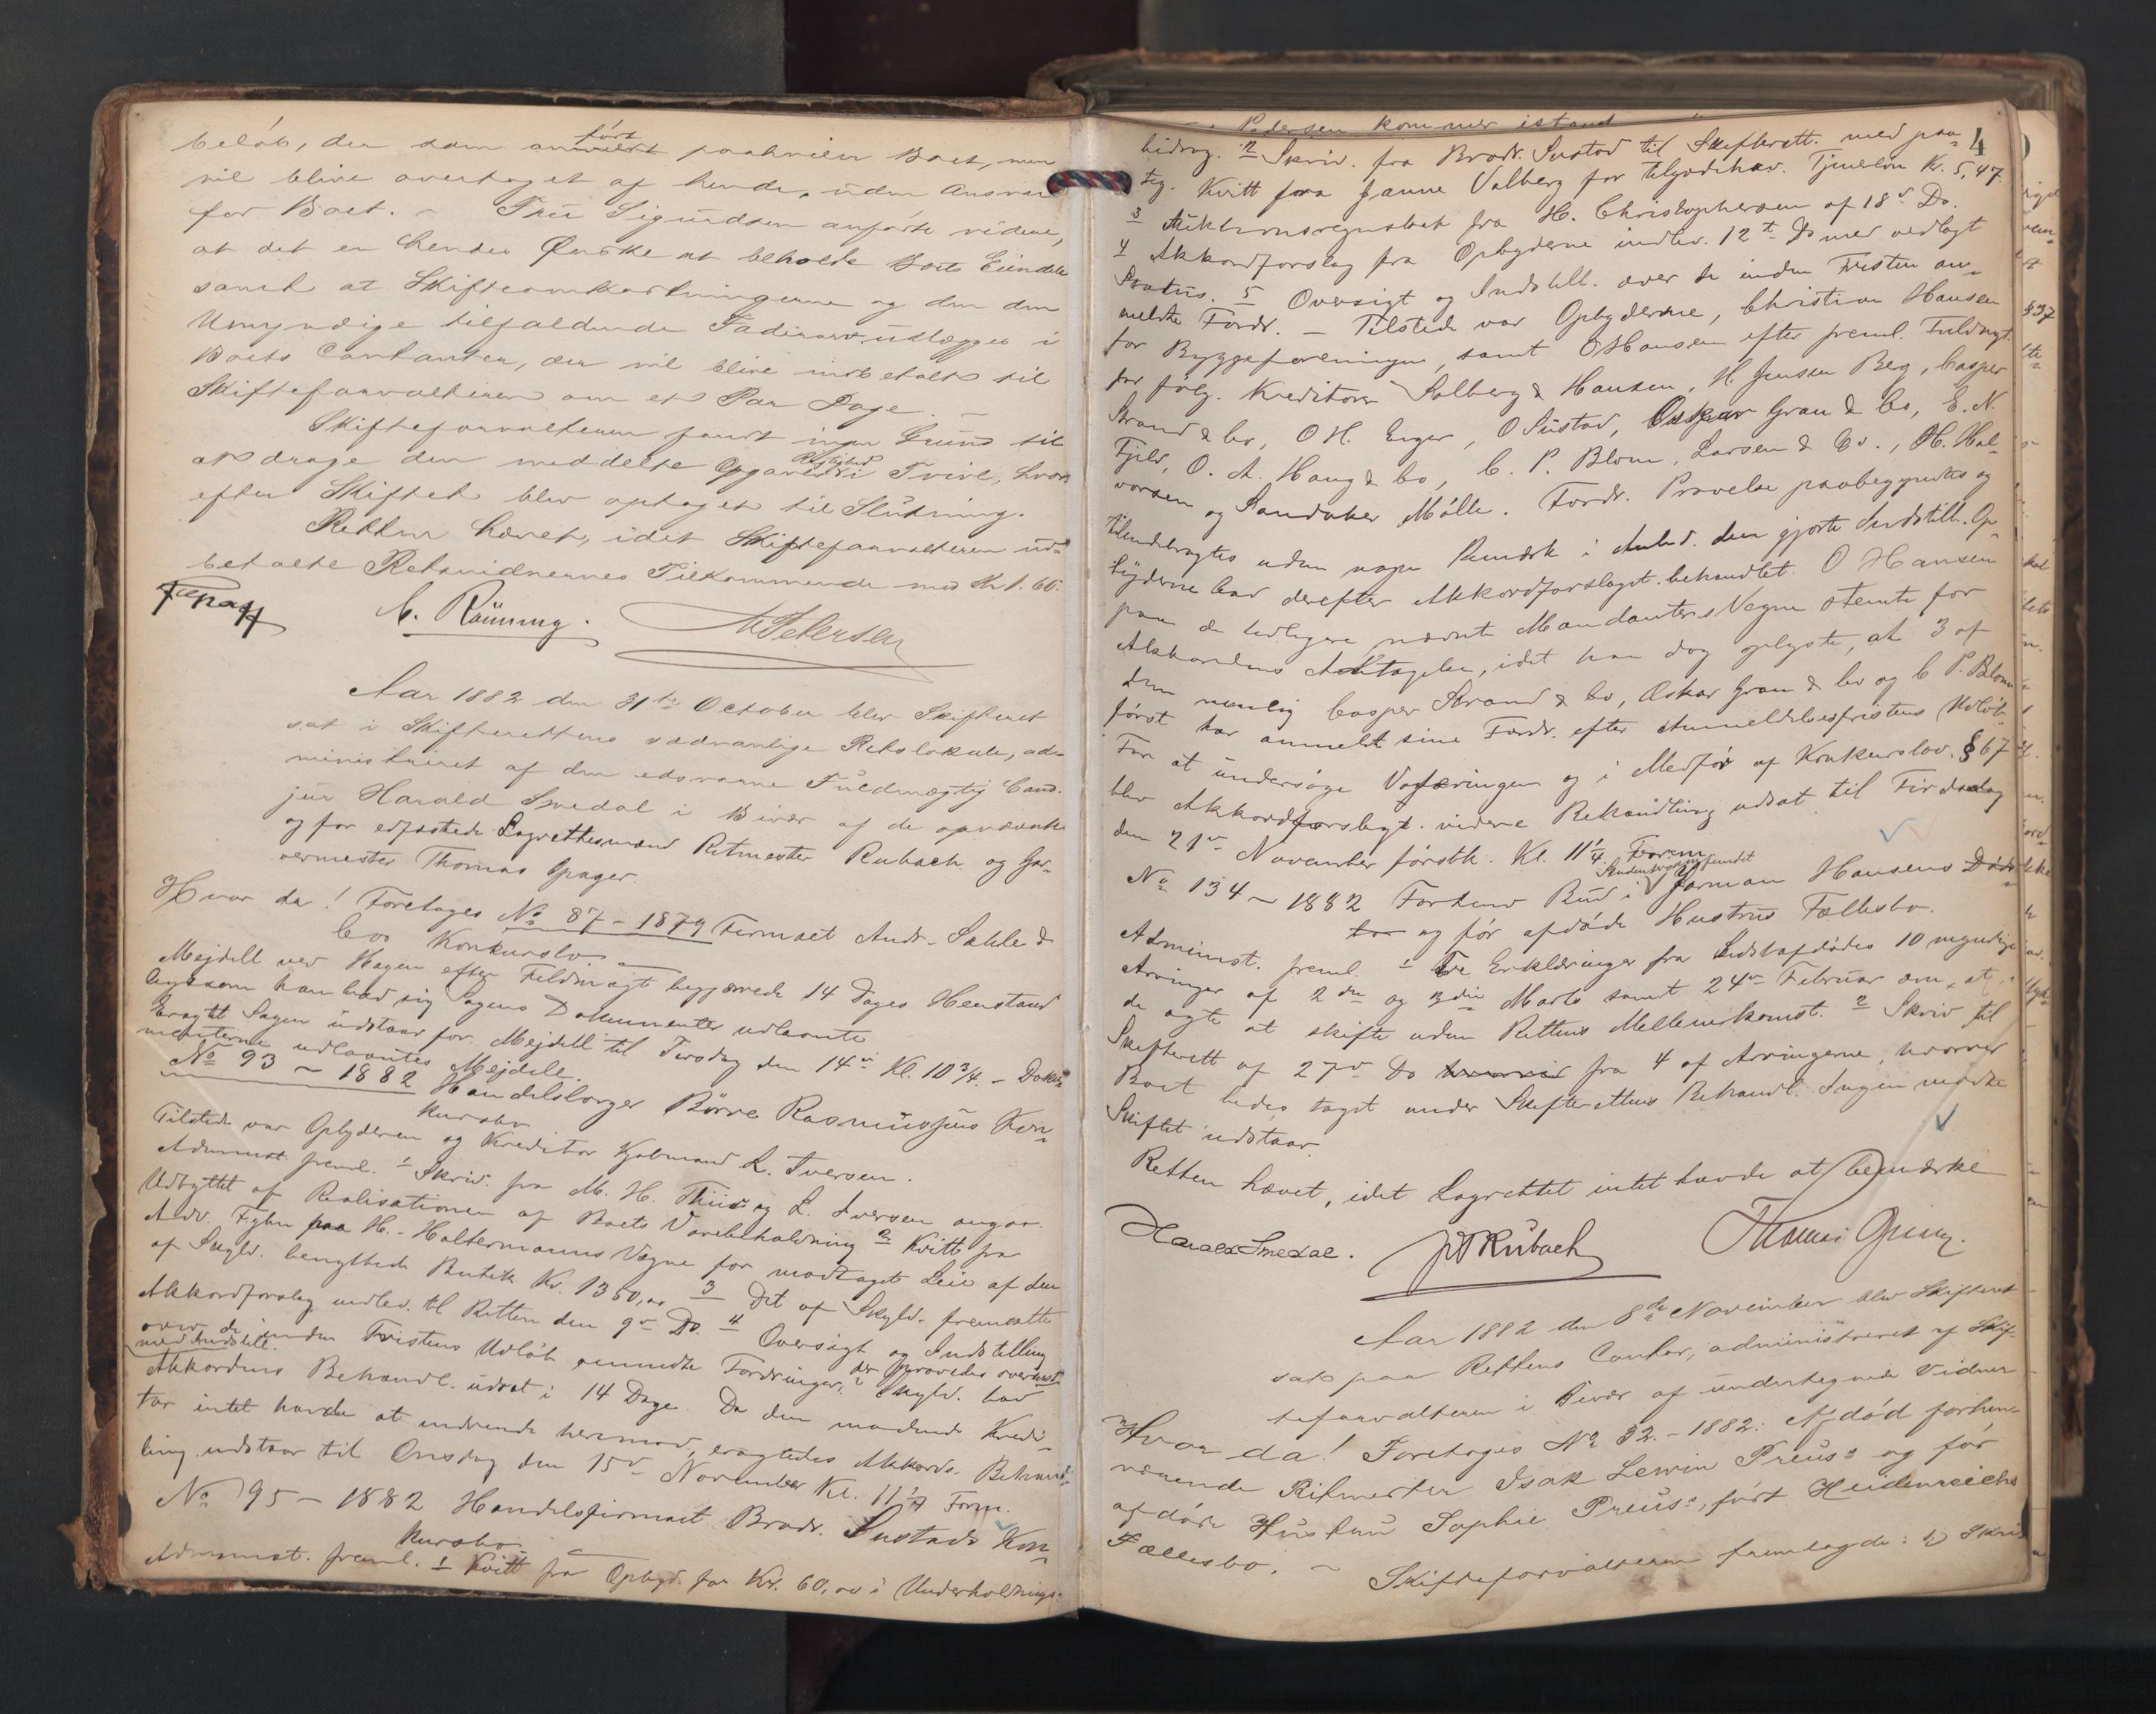 beløb, der som anført paahviler Boet, nu
vil blive overtaget af hende, uden Ansvar
for Boet. – Fru Sigurdsen anførte videre,
at det er hendes Ønske at beholde Boets Eiendele
samt at Skifteomkostningerne og den den
Umyndige tilfaldende Faderarv udlægges i
Boets Contanter, der vil blive indbetalt til
Skifteforvalteren om et Par Dage. –
Skifteforvalteren fandt ingen Grund til
at drage den meddelte Opgaves Rigtighed i Tvivl, hvor-
efter Skiftet blev optaget til Slutning.
Retten hævet, idet Skifteforvalteren ud-
betalte Retsvidnernes Tilkommende med Kr 1.60.
C. Rönning. Petersen
Aar 1882 den 31te October blev Skifteret
sat i Skifterettens sædvanlige Retslokale, ad-
ministreret af den edsvorne Fuldmægtig Cand.
jur Harald Smedal i Bivær af de opnævnte
og for edfæstede Lagrettesmænd Ritmester Rubach og Gar-
vermester Thomas Opager.
Hvor da! Foretoges No 87 – 1879 Firmaet Andr. Sæhle &
Cos Konkursbo. –
Mejdell ved Hagen efter Fuldmagt begjærede 14 Dages Henstand
ligesom han bad sig Sagens Dokumenter udlaante
Eragtet Sagen udstaar for Mejdell til Tirsdag den 14de Kl. 10 3/4. – Doku-
menterne udlaantes Mejdell.
No 93 – 1882 Handelsborger Børre Rasmussens Kon-
kursbo
Tilstede var Opbyderen og Kreditor Kjøbmand L. Iversen.
Administ. freml. 1 Skriv. fra M. H. Thiis og L. Iversen angaa.
Udbyttet af Realisationen af Boets Varebeholdning 2 Kvitt fra
Adv. paa H. Holtermanns Vegne for modtaget Leie af den
af Skyld. benyttede Butik Kr. 1350,00 3 Det af Skyld. fremsatte
Akkordforslag indlev. til Retten den 9de Do. 4 Oversigt og Indstilling
over de inden Fristens Udløb anmeldte Fordringer, der prøvedes overenst.
med Indstill. Skyld. bad
Akkordens Behandl. udsat i 14 Dage. Da den mødende Kredi-
tor intet havde at indvende herimod, eragtedes Akkords. Behand-
ling udstaar til Onsdag den 15de November Kl. 11 1/4 Form.
No 95 – 1882 Handelsfirmaet Brødr. Sustads Kon-
kursbo –
Administ. freml. 1 Kvitt fra Opbyd. for Kr. 60,00 i Underholdnings-
4
Pedersen kommer istand
bidrag. 2 Skriv. fra Brødr. Sustad til Skifterett. med paa-
teg. Kvitt fra Janne Valberg for tilgodehav. Tjenerløn Kr. 5,47.
3 Auktionsregnskab fra H. Christophersen af 18de Do.
4 Akkordforslag fra Opbyderne indlev. 12te Do med vedlagt
Status. 5 Oversigt og Indstill. over de inden Fristen an-
meldte Fordr. – Tilstede var Opbyderne, Christian Hansen
for Byggeforeningen, samt O Hansen efter freml. Fuldmgt.
for følg. Kreditorer Solberg & Hansen, H. Jensen Beg, Casper
Strand & Co, O H. Enger, O Sustad, Oskar Gran & Co, E. N.
Fjeld, O. A. Haug & Co, C. P. Blom, Larsen & Co., H. Hal-
vorsen og Sandaker Mølle. Fordr. Prøvelse paabegyndtes og
tilendebragtes uden nogen Bemærk i Anled. den gjorte Indstill. Op-
byderne bad derefter Akkordforslaget behandlet. O Hansen
paa de tidligere nævnte Mandanters Vegne stemte for
Akkordens Antagelse, idet han dog oplyste, at 3 af
dem nemlig Casper Strand & Co, Oskar Gran & Co og C P. Blom
først har anmeldt sine Fordr. efter Anmeldelsesfristens Udløb.
For at undersøge Voteringen og i Medfør af Konkurslov. § 67
blev Akkordforslagt. videre Behandling udsat til Tirsdag
den 21de November førstk. Kl. 11 1/4. Form
No 134 – 1882 Forhenv Bud i Studentersamfundet Herman Hansens Døds-
bo og før afdøde Hustrus Fællesbo.
Administ. freml. 1 Tre Erklæringer fra Sidstafdødes 10 myndige
Arvinger af 2den og 3die Marts samt 24de Februar om, at
de agte at skifte uden Rettens Mellemkomst. 2 Skriv til
Skifterett af 27de Do fra 4 af Arvingerne, hvorved
Boet bedes taget under Skifterettens Behandl. Ingen mødte
Skiftet udstaar.
Retten hævet, idet Lagrettet intet havde at bemærke
Harald Smedal. Rubach Thomas Opager.
Aar 1882 den 8de November blev Skifteret
sat paa Rettens Contor, administreret af Skif-
teforvalteren i Bivær af undertegnede Vidner
Hvor da! Foretoges No 32. – 1882: Afdød forhen-
værende Ritmester Isak Lewin Preus's og før
afdøde Hustru Sophie Preus's, født Heidenreichs
Fællesbo. – Skifteforvalteren fremlagde: 1) Skriv